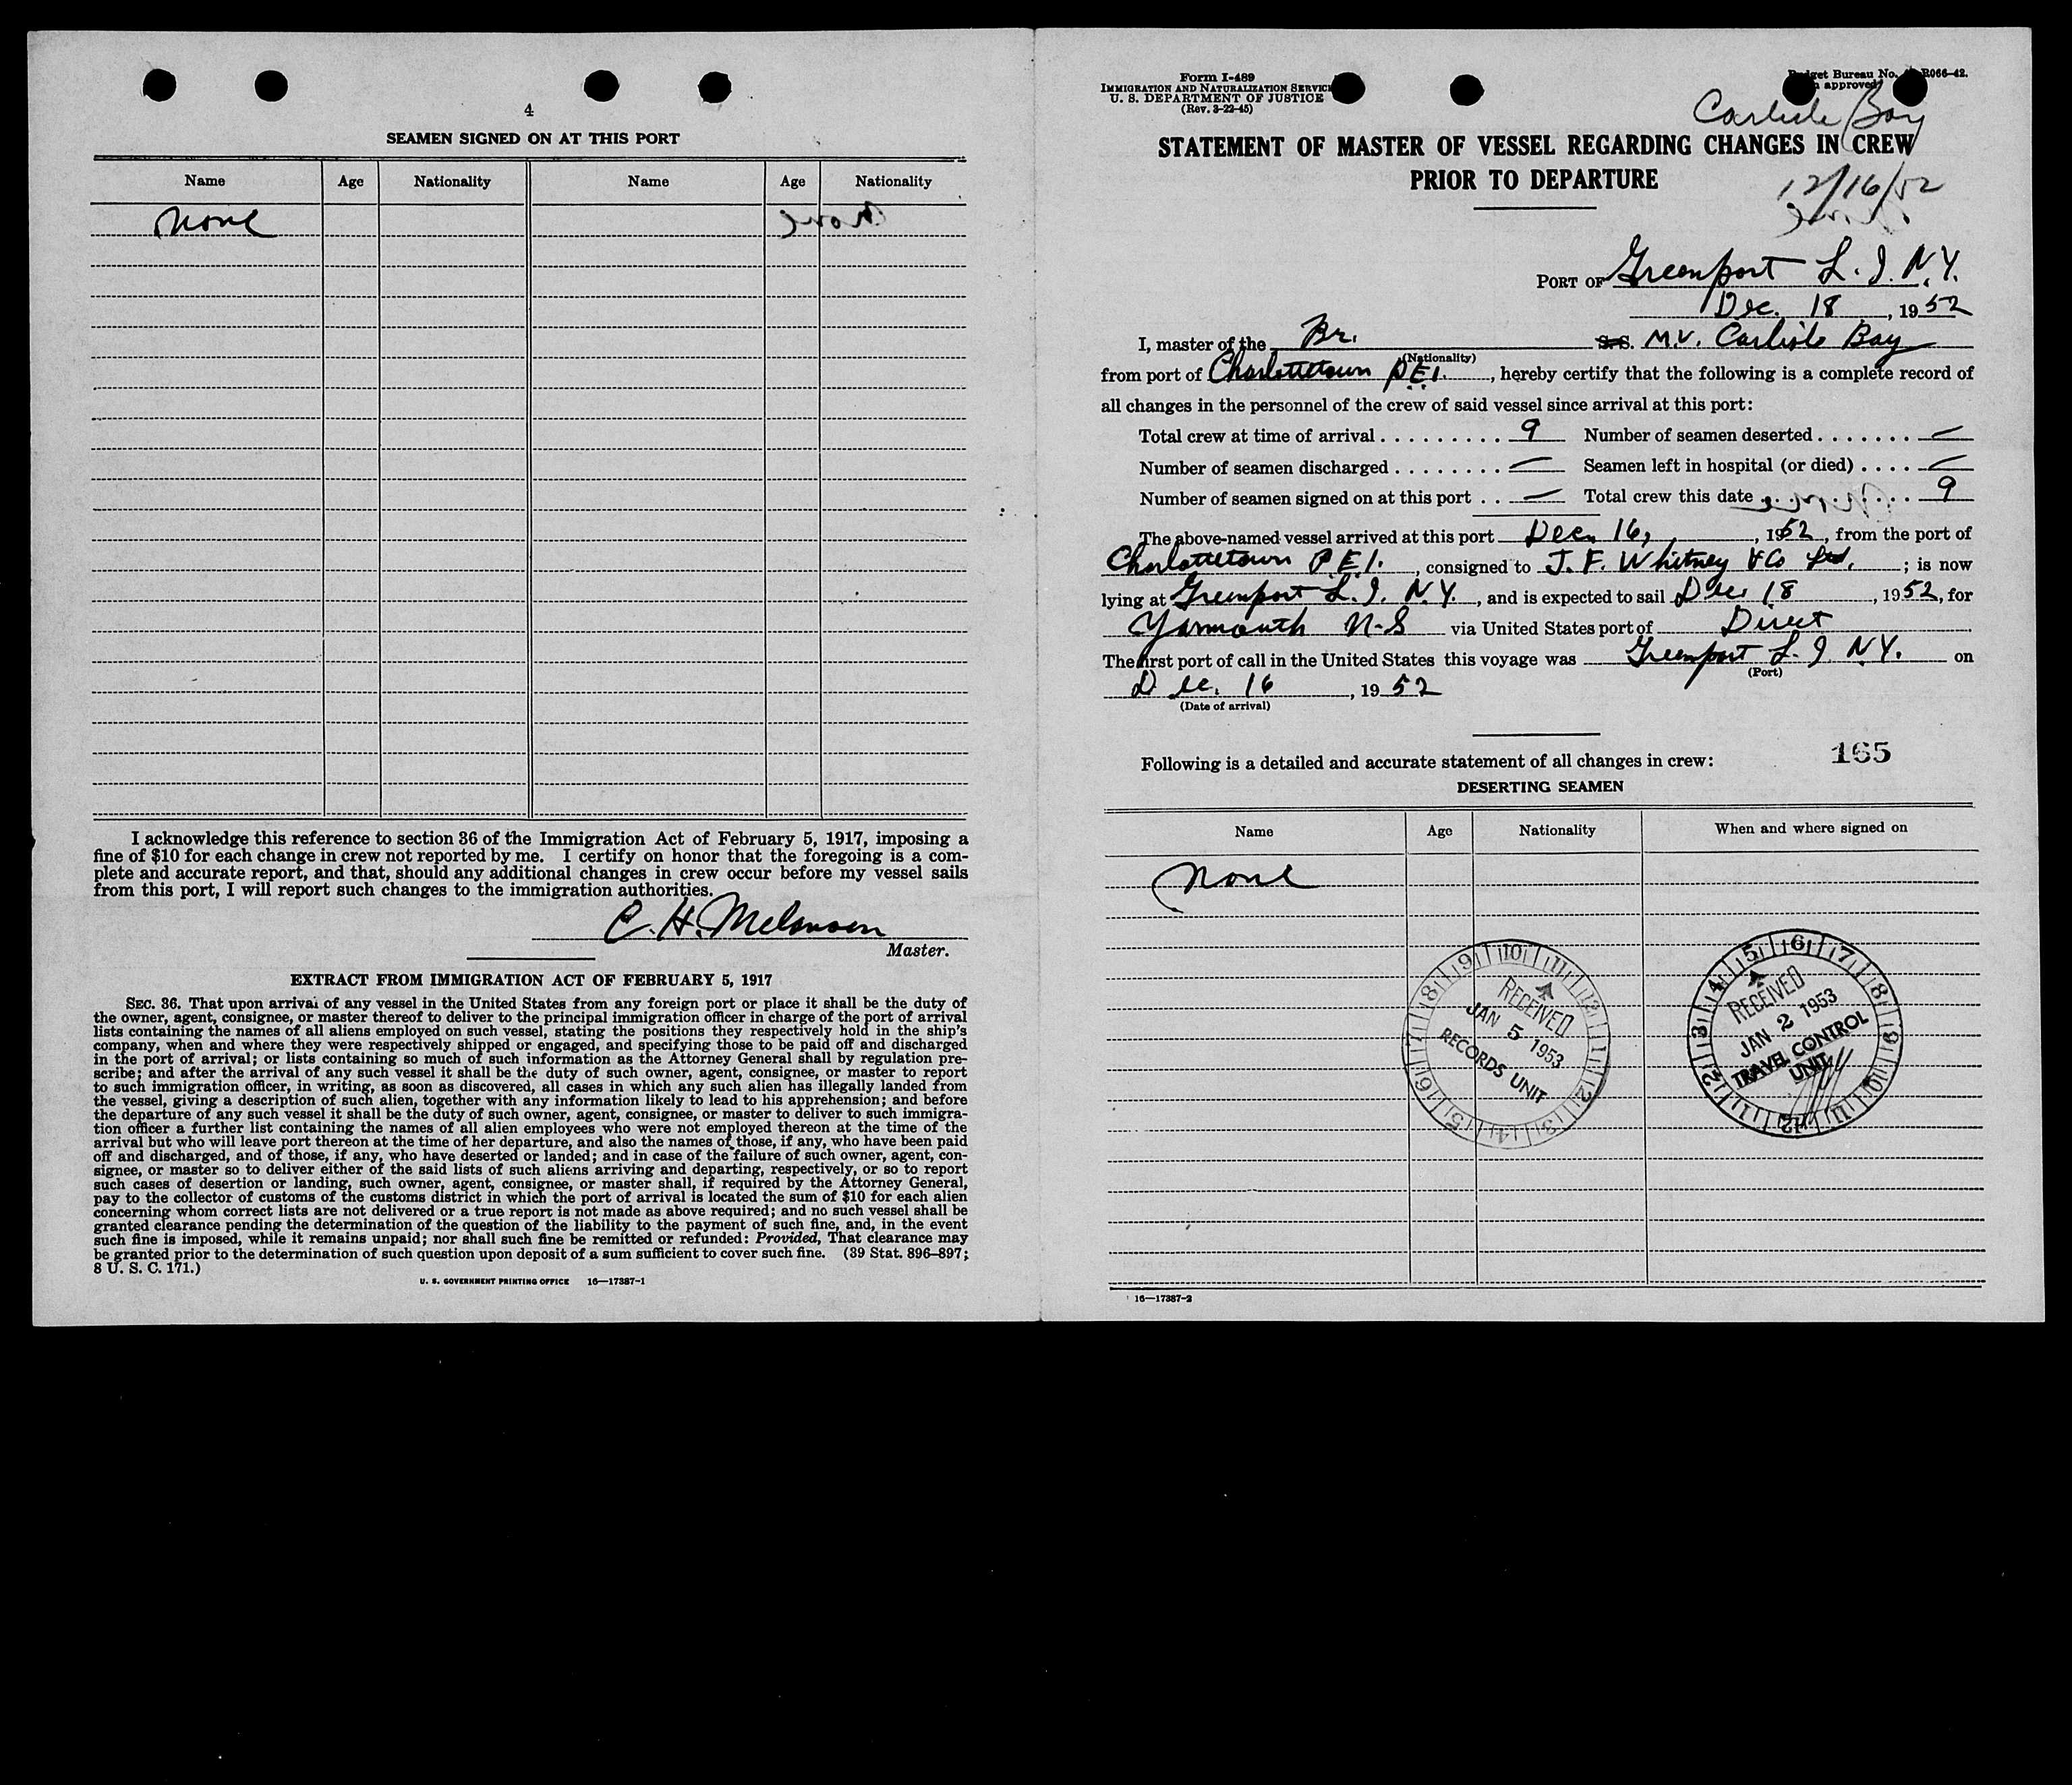 4
SEAMEN SIGNED ON AT THIS PORT
Name Age Nationality Name Age Nationality
None
I acknowledge this reference to section 36 of the Immigration Act of February 5, 1917, imposing a
fine of $10 for each change in crew not reported by me. I certify on honor that the foregoing is a com-
plete and accurate report, and that, should any additional changes in crew occur before my vessel sails
from this port, I will report such changes to the immigration authorities.
C. H. Melanson
Master.
EXTRACT FROM IMMIGRATION ACT OF FEBRUARY 5, 1917
SEC. 36. That upon arrival of any vessel in the United States from any foreign port or place it shall be the duty of
the owner, agent, consignee, or master thereof to deliver to the principal immigration officer in charge of the port of arrival
lists containing the names of all aliens employed on such vessel, stating the positions they respectively hold in the ship's
company, when and where they were respectively shipped or engaged, and specifying those to be paid off and discharged
in the port of arrival; or lists containing so much of such information as the Attorney General shall by regulation pre-
scribe; and after the arrival of any such vessel it shall be the duty of such owner, agent, consignee, or master to report
to such immigration officer, in writing, as soon as discovered, all cases in which any such alien has illegally landed from
the vessel, giving a description of such alien, together with any information likely to lead to his apprehension; and before
the departure of any such vessel it shall be the duty of such owner, agent, consignee, or master to deliver to such immigra-
tion officer a further list containing the names of all alien employees who were not employed thereon at the time of the
arrival but who will leave port thereon at the time of her departure, and also the names of those, if any, who have been paid
off and discharged, and of those, if any, who have deserted or landed; and in case of the failure of such owner, agent, con-
signee, or master so to deliver either of the said lists of such aliens arriving and departing, respectively, or so to report
such cases of desertion or landing, such owner, agent, consignee, or master shall, if required by the Attorney General,
pay to the collector of customs of the customs district in which the port of arrival is located the sum of $10 for each alien
concerning whom correct lists are not delivered or a true report is not made as above required; and no such vessel shall be
granted clearance pending the determination of the question of the liability to the payment of such fine, and, in the event
such fine is imposed, while it remains unpaid; nor shall such fine be remitted or refunded: Provided, That clearance may
be granted prior to the determination of such question upon deposit of a sum sufficient to cover such fine. (39 Stat. 896–897;
8 U. S. C. 171.)
U. S. GOVERNMENT PRINTING OFFICE 16—17387-1
Form I-489
IMMIGRATION AND NATURALIZATION SERVICE
U. S. DEPARTMENT OF JUSTICE
(Rev. 3-22-45)
Bureau No. R066-42.
approved
Carlisle Bay
STATEMENT OF MASTER OF VESSEL REGARDING CHANGES IN CREW
PRIOR TO DEPARTURE
12/16/52
PORT OF Greenport L. I. N.Y.
Dec. 18, 1952
I, master of the Br. S.S. M.V. Carlisle Bay
(Nationality)
from port of Charlottetown P.E.I., hereby certify that the following is a complete record of
all changes in the personnel of the crew of said vessel since arrival at this port:
Total crew at time of arrival 9 Number of seamen deserted —
Number of seamen discharged — Seamen left in hospital (or died) —
Number of seamen signed on at this port — Total crew this date 9
The above-named vessel arrived at this port Dec. 16, 1952, from the port of
Charlottetown P.E.I., consigned to J. F. Whitney & Co Ltd.; is now
lying at Greenport L. I. N.Y., and is expected to sail Dec 18, 1952, for
Yarmouth N-S via United States port of Direct
The first port of call in the United States this voyage was Greenport L. I. N.Y. on
(Port)
Dec. 16, 1952
(Date of arrival)
165
Following is a detailed and accurate statement of all changes in crew:
DESERTING SEAMEN
Name Age Nationality When and where signed on
None
RECEIVED
JAN 5 1953
RECORDS UNIT
RECEIVED
JAN 2 1953
TRAVEL CONTROL
UNIT
16—17387-2